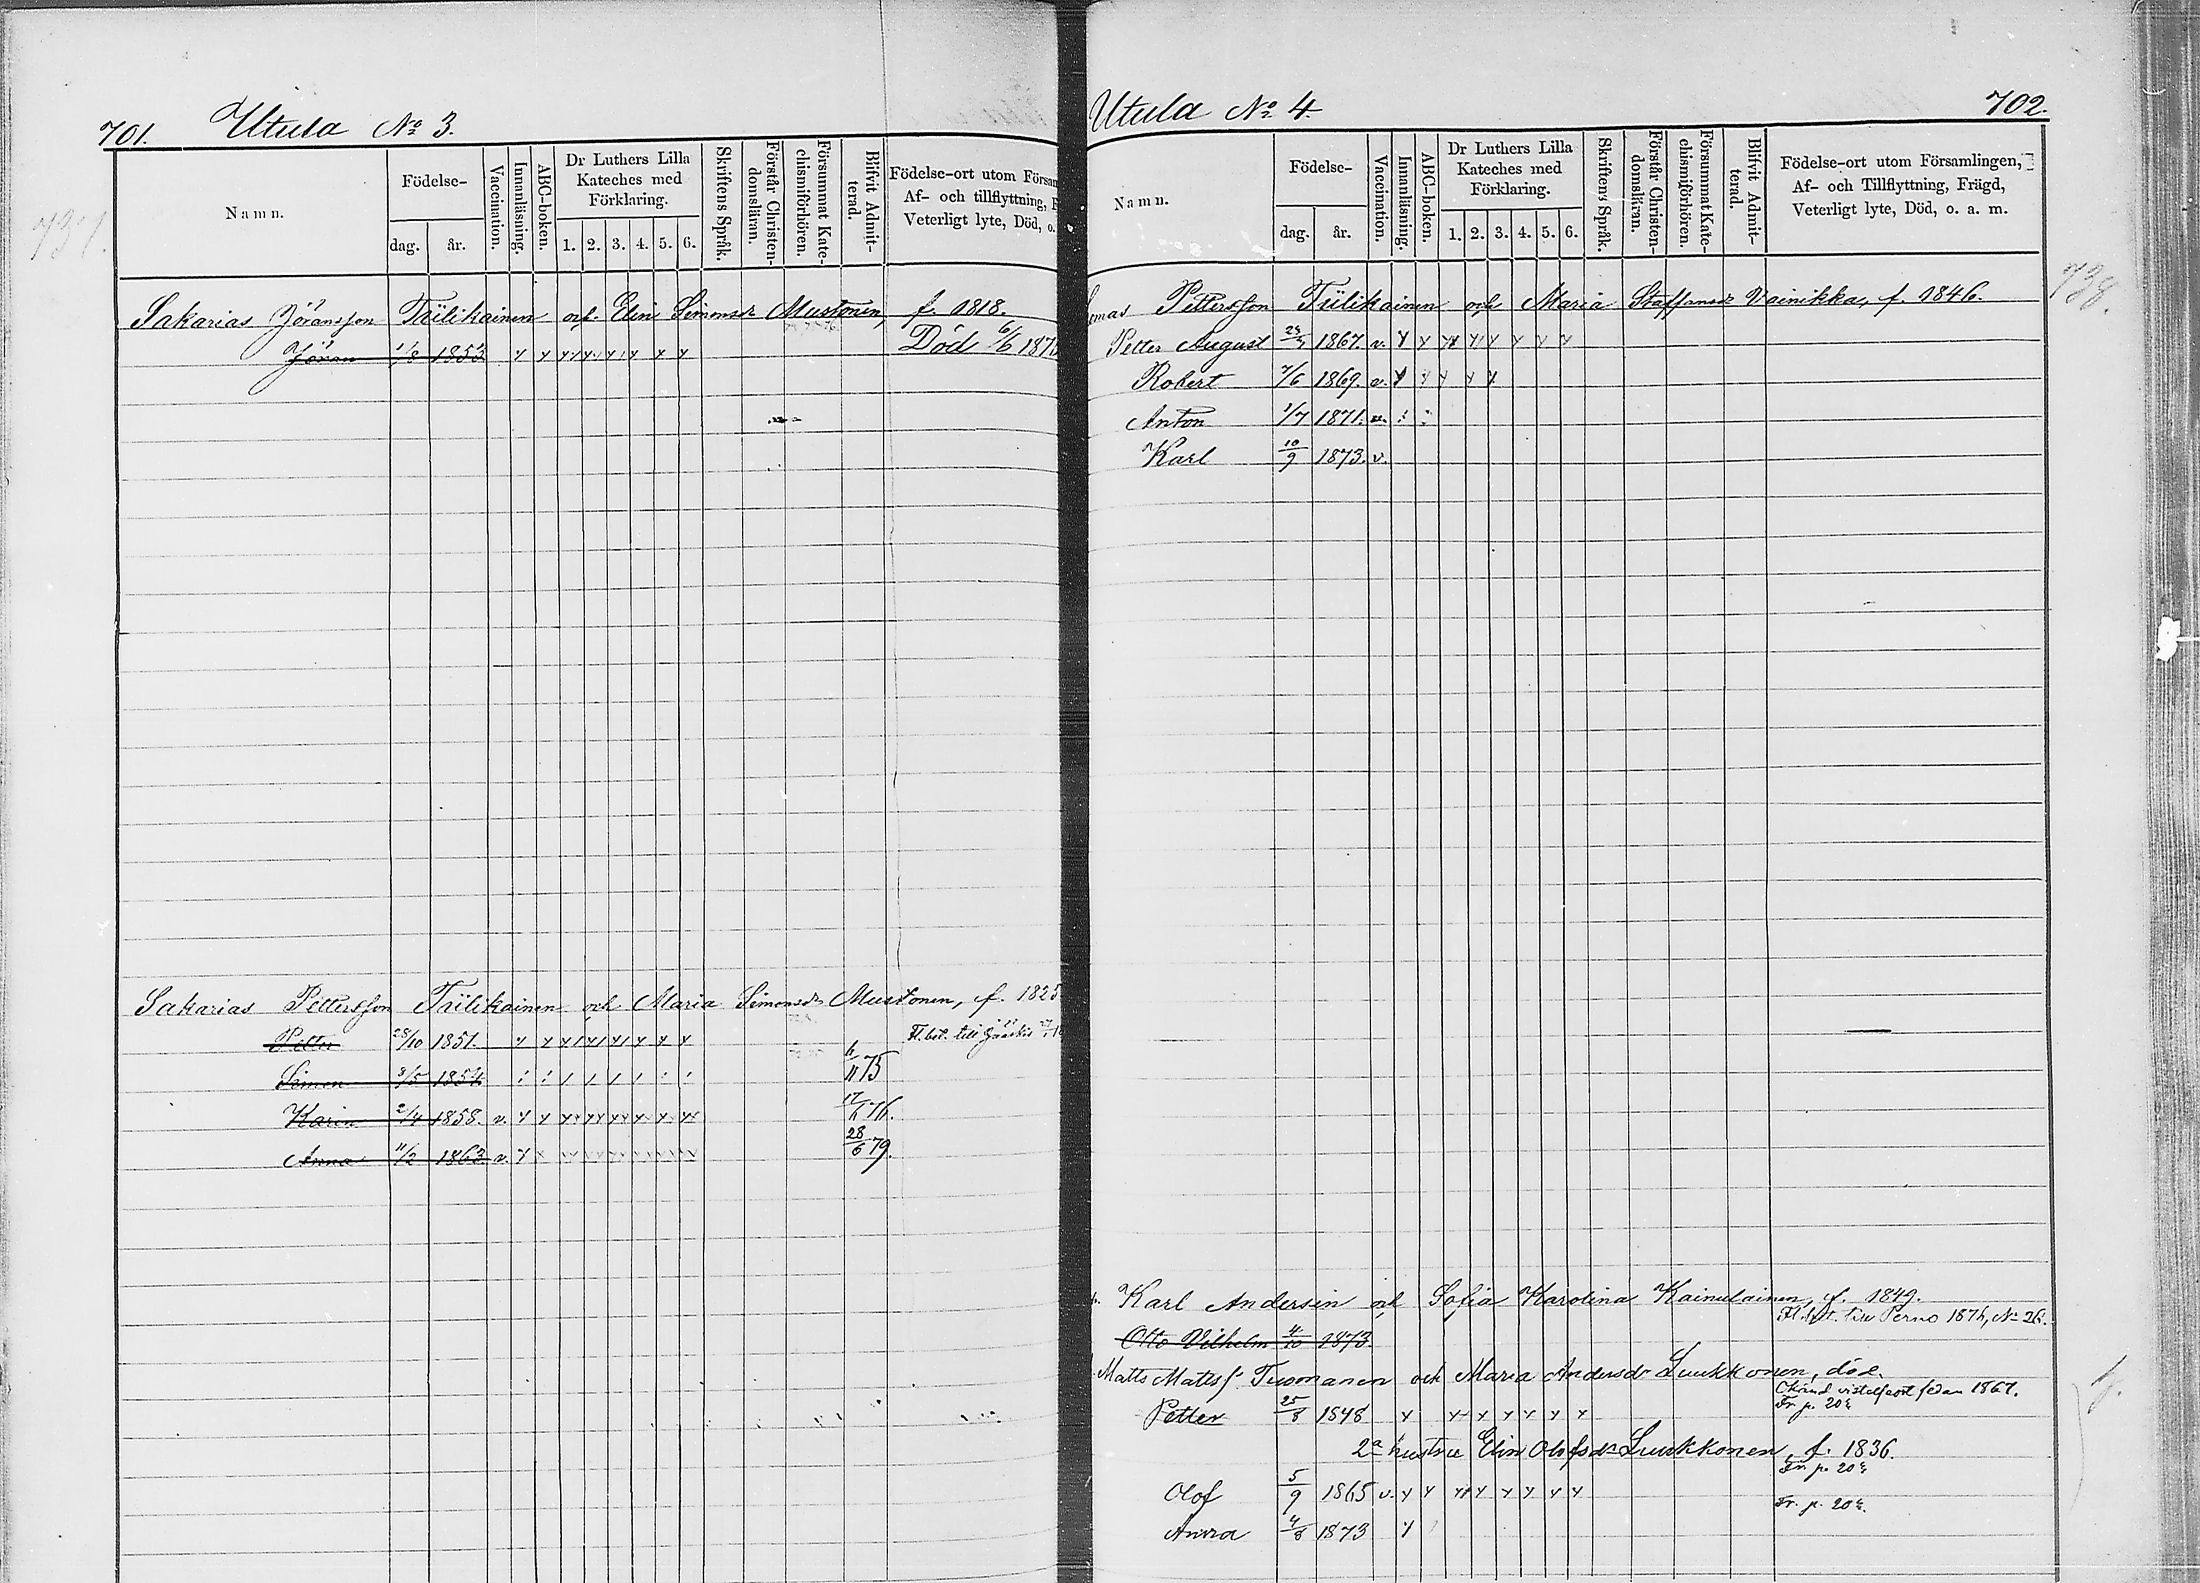 701. Utula No 3.
737.
Namn.
Födelse-
dag. år.
Vaccination.
Innanläsning.
ABC-boken.
Dr Luthers Lilla Kateches med Förklaring.
1. 2. 3. 4. 5. 6.
Skriftens Språk.
Förstår Christendomsläran.
Försummat Katechismiförhören.
Blifvit Admitterad.
Födelse-ort utom Försam
Af- och tillflyttning,
Veterligt lyte, Död, o.
Sakarias Jöransson Tiilikainen och Elin Simonsdr Mustonen, f. 1818.
Jöran 1/8 1853 Död 6/6 187
Sakarias Pettersson Tiilikainen och Maria Simonsdr Mustonen, f. 1825
Petter 28/10 1851. Fl. bet. till Jääskis
Simon 3/5 1854 6/11 75
Karin 2/4 1858. v. 17/6 76.
Anna 11/2 1863. v. 28/6 79.
Utula No 4. 702.
738.
Namn.
Födelse-
dag. år.
Vaccination.
Innanläsning.
ABC-boken.
Dr Luthers Lilla Kateches med Förklaring.
1. 2. 3. 4. 5. 6.
Skriftens Språk.
Förstår Christendomsläran.
Försummat Katechismiförhören.
Blifvit Admitterad.
Födelse-ort utom Församlingen,
Af- och Tillflyttning, Frägd,
Veterligt lyte, Död, o. a. m.
omas Pettersson Tiilikainen och Maria Staffansdr Vainikka, f. 1846.
Petter August 1867. v.
Robert 7/6 1869. v.
Anton 1/7 1871. v.
Karl 10/9 1873. v.
Karl Andersin och Sofia Karolina Kainulainen, f. 1849.
Fl. bet. till Perno 1876, No 26.
Otto Vilhelm 4/10 1873
Matts Mattss. Tuomanen och Maria Andersdr Luukkonen, död.
Okänd vistelseort sedan 1867.
Petter 25/8 1848 Fr. p. 20
2a hustru Elin Olofsdr Luukkonen, f. 1836.
Fr. p. 20
Olof 5/9 1865 v. Fr. p. 20
Anna 4/8 1873